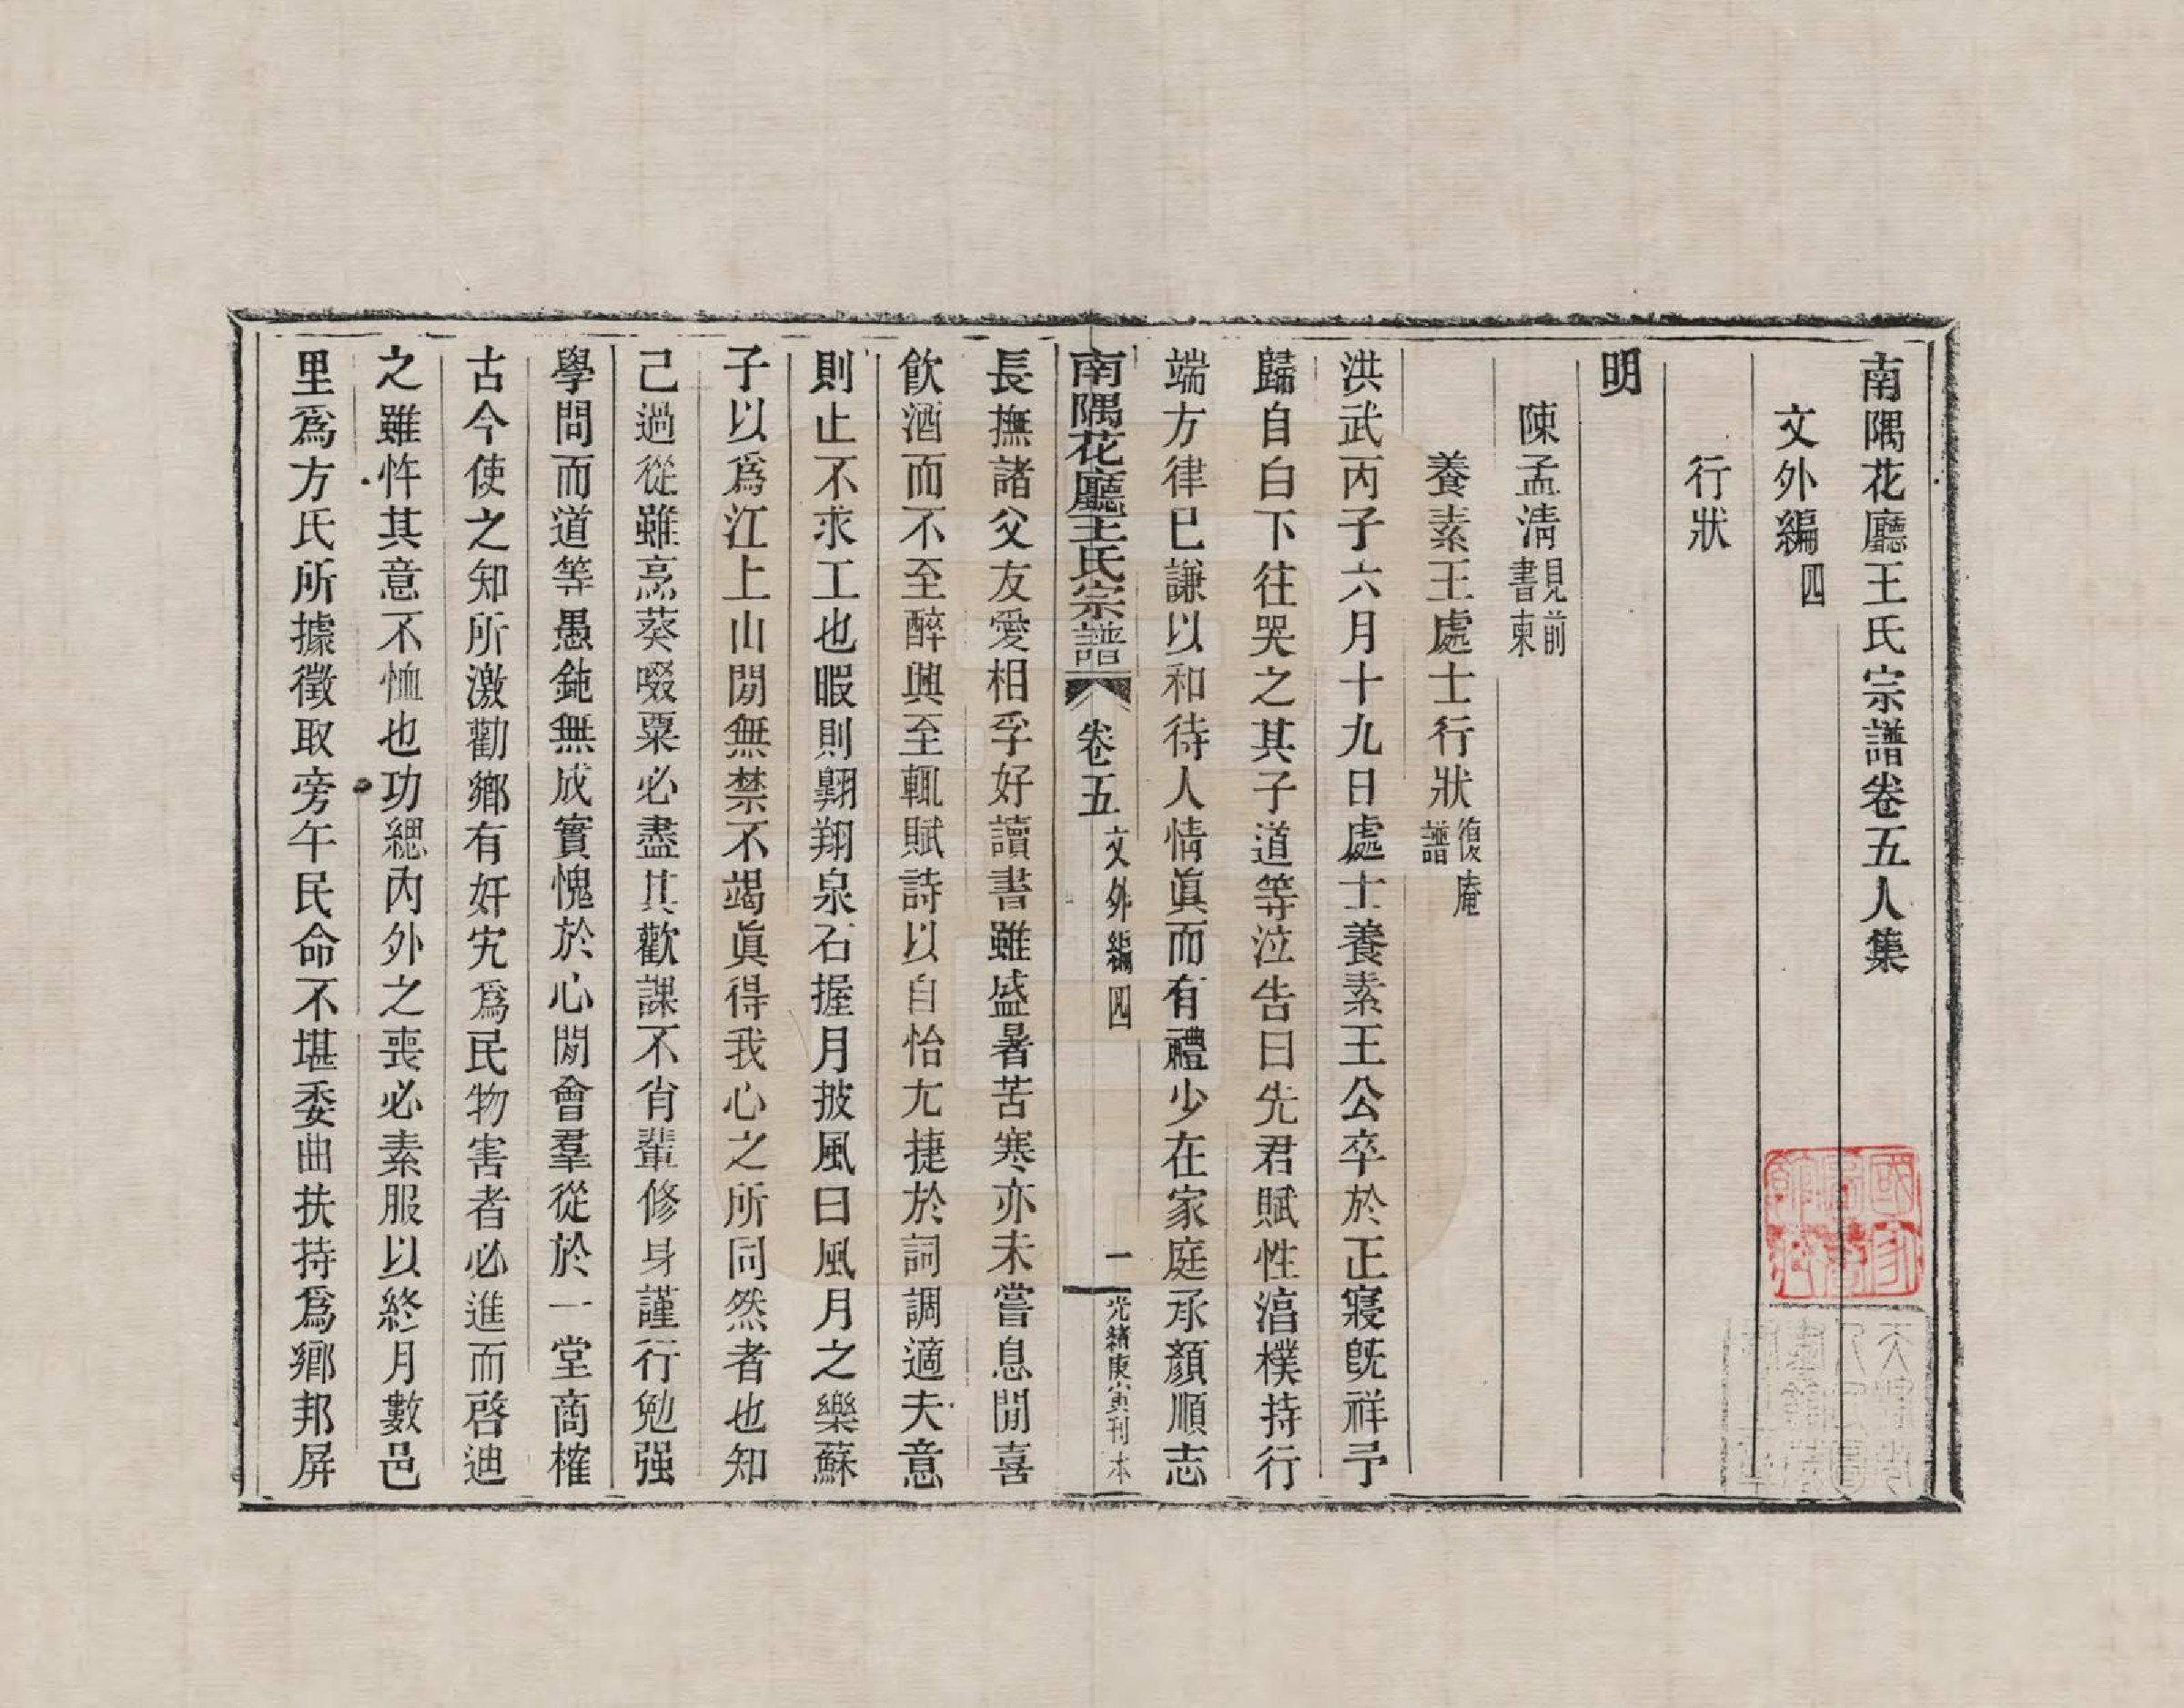 南隅花廳王氏宗譜卷五人集
文外編四
行狀
明
陳孟淸見前書柬
養素王處士行狀復庵譜
洪武丙子六月十九日處士養素王公卒於正寢旣祥予
歸自白下往哭之其子道等泣告曰先君賦性湻樸持行
端方律已謙以和待人情眞而有禮少在家庭承顏順志
南隅花廳王氏宗譜 卷五 文外編四 一 光緒庚寅刊本
長撫諸父友愛相孚好讀書雖盛暑苦寒亦未嘗息閒喜
飮酒而不至醉興至輒賦詩以自怡尢捷於詞調適夫意
則止不求工也暇則翺翔泉石握月披風曰風月之樂蘇
子以爲江上山閒無禁不竭眞得我心之所同然者也知
己過從雖烹葵啜粟必盡其歡課不肖輩修身謹行勉强
學問而道等愚鈍無成實愧於心閒會羣從於一堂商榷
古今使之知所激勸鄕有奸宄爲民物害者必進而啓迪
之雖忤其意不恤也功緦內外之喪必素服以終月數邑
里爲方氏所據徵取旁午民命不堪委曲扶持爲鄕邦屏